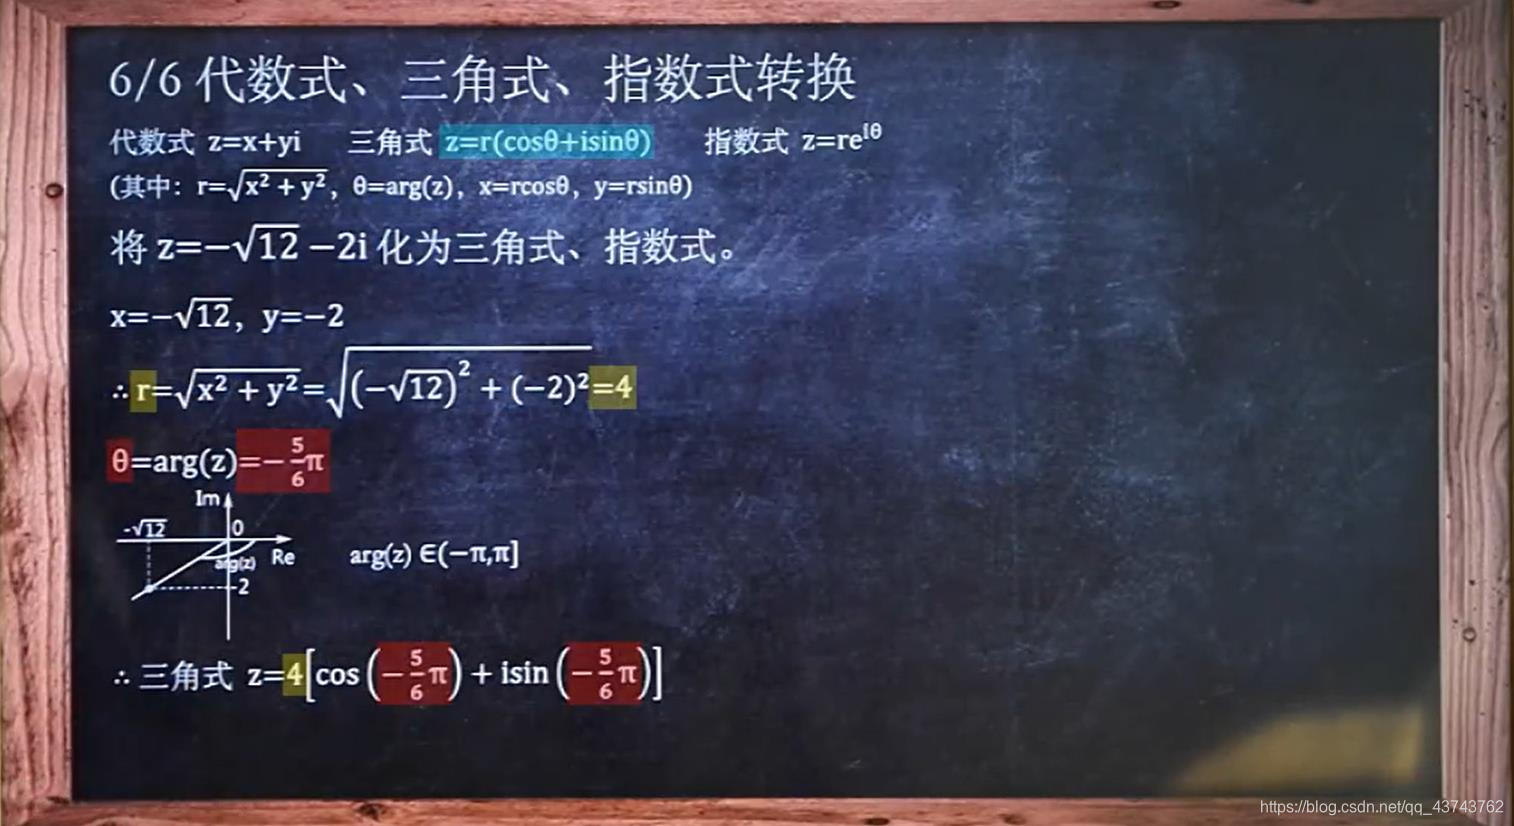 6/6 代数式、三角式、指数式转换
代数式 z=x+yi 三角式 z=r(cosθ+isinθ) 指数式 z=re^{iθ}
(其中: r=√(x²+y²), θ=arg(z), x=rcosθ, y=rsinθ)
将 z=−√12 −2i 化为三角式、指数式。
x=−√12, y=−2
∴ r=√(x²+y²)=√((−√12)²+(−2)²)=4
θ=arg(z)=−5/6π
Im
-√12 0
arg(z) Re arg(z) ∈(−π,π]
-2
∴ 三角式 z=4[cos(−5/6π)+isin(−5/6π)]
https://blog.csdn.net/qq_43743762